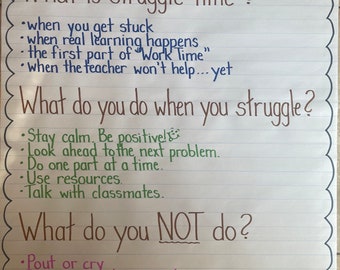 What is Struggle Time?
•when you get stuck
•when real learning happens
•the first part of "Work Time"
•when the teacher won't help...yet
What do you do when you struggle?
•Stay calm. Be positive!
•Look ahead to the next problem.
•Do one part at a time.
•Use resources.
•Talk with classmates.
What do you NOT do?
•Pout or cry